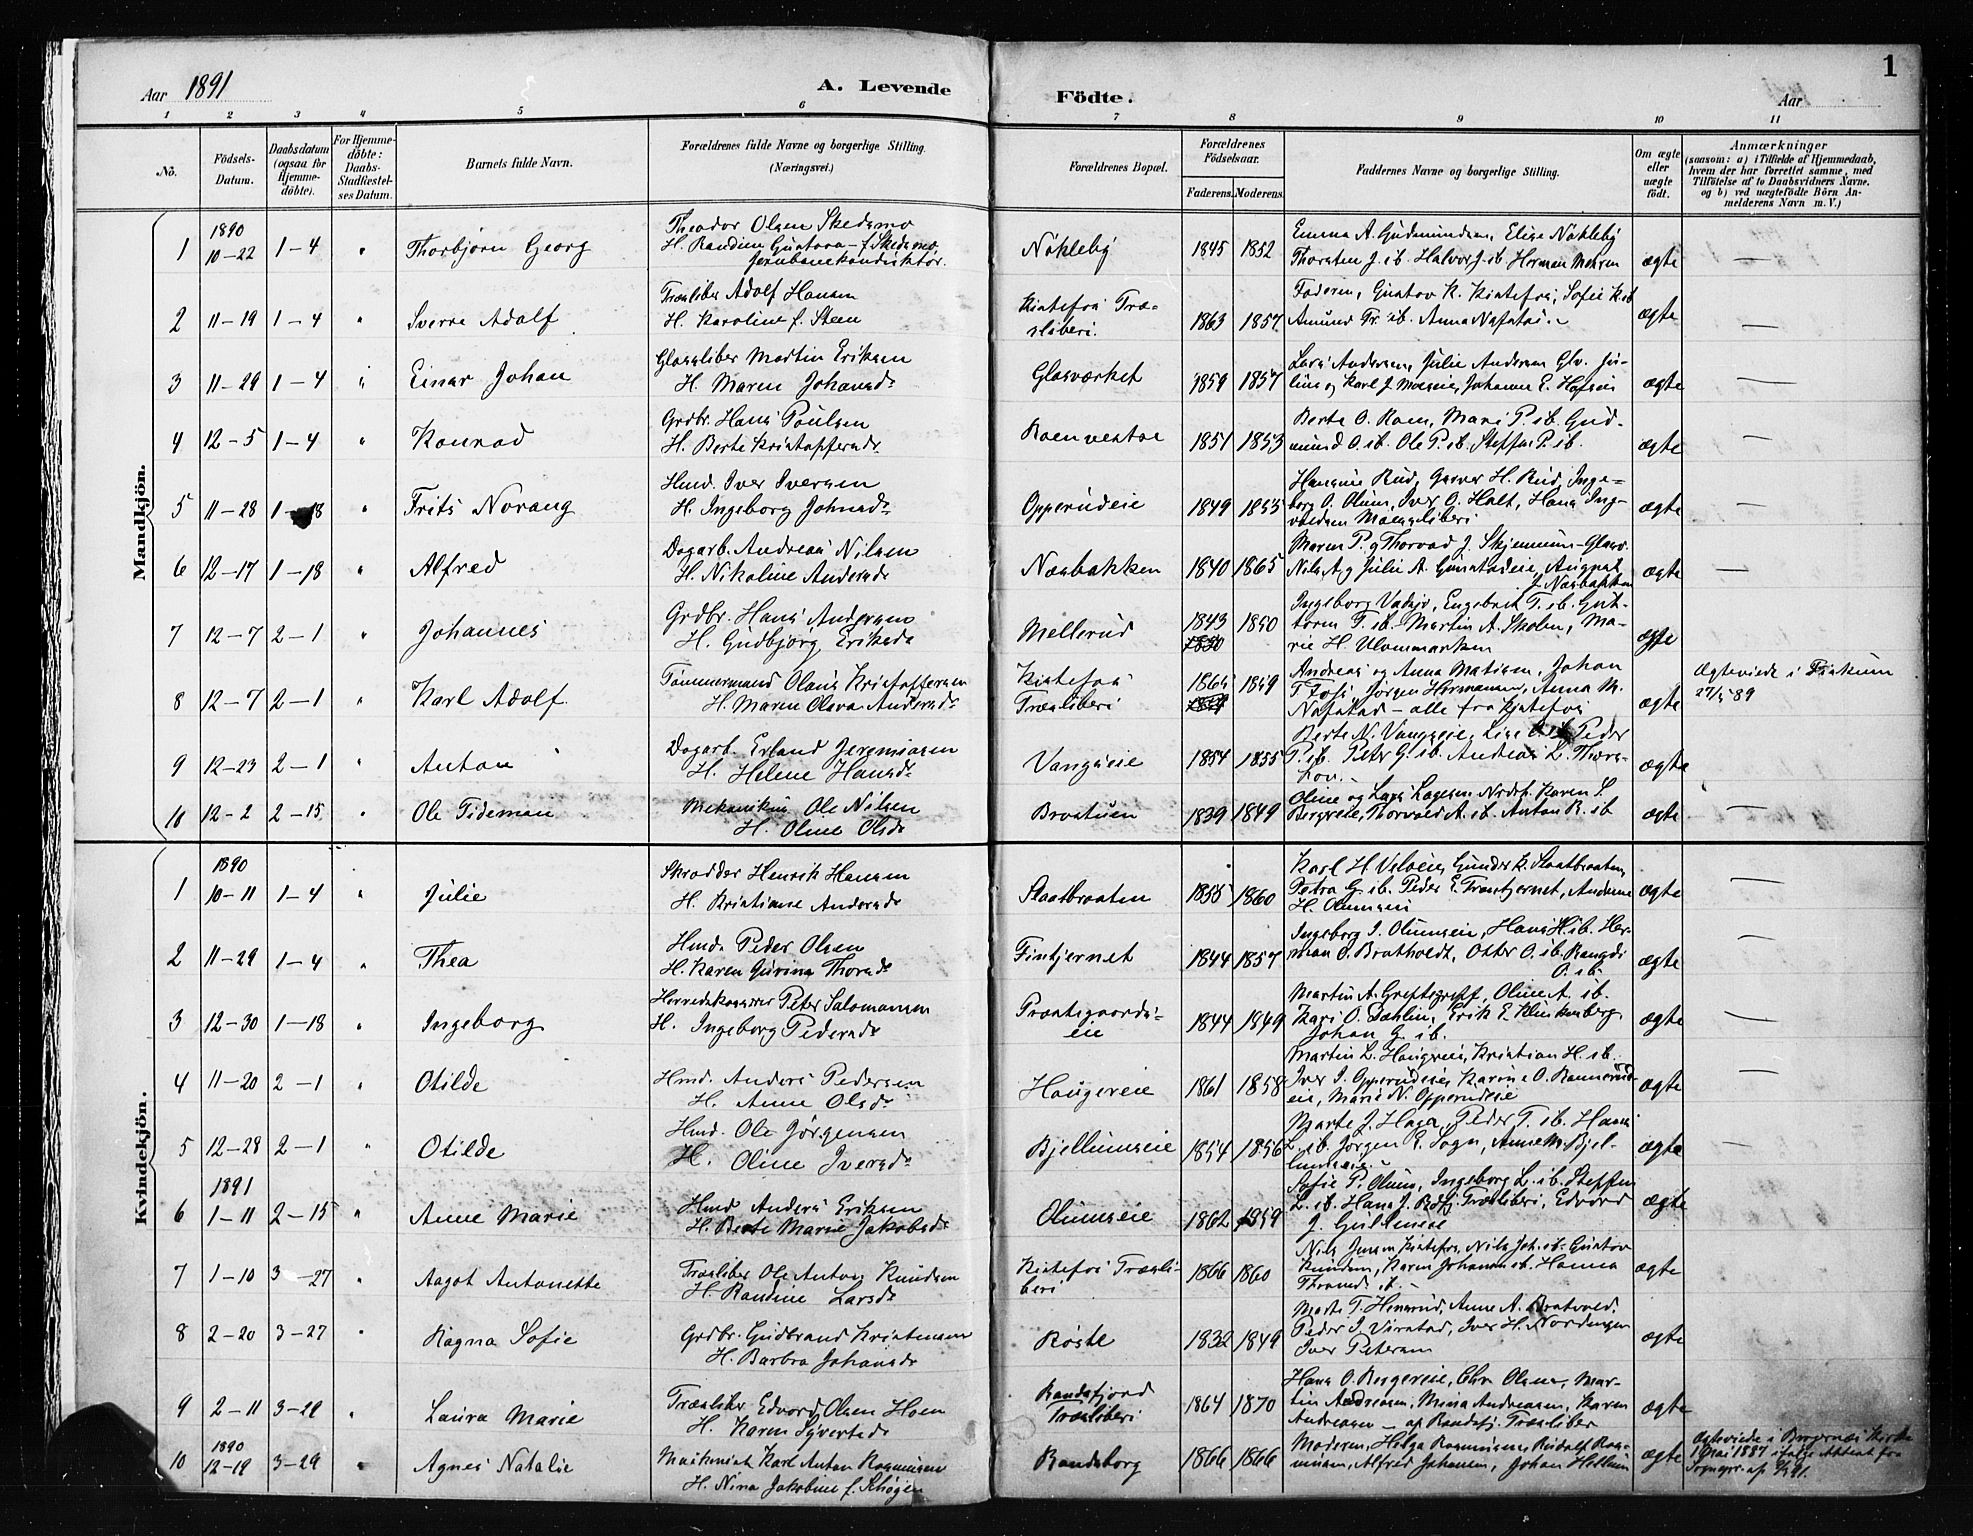 Aar 1891
A. Levende
Födte.
Aar
1
1 2 3 4 5 6 7 8 9 10 11
No.
Födsels-
Datum.
Daabsdatum
(ogsaa for
Hjemme-
döbte).
For Hjemme-
döbte:
Daabs-
Stadfæstel-
ses Datum.
Barnets fulde Navn.
Forældrenes fulde Navne og borgerlige Stilling.
(Næringsvei.)
Forældrenes Bopæl.
Forældrenes
Födselsaar.
Faderens. Moderens.
Faddernes Navne og borgerlige Stilling.
Om ægte
eller
uægte
födt.
Anmærkninger
(saasom: a) i Tilfælde af Hjemmedaab,
hvem der har forrettet samme, med
Tilföielse af to Daabsvidners Navne.
og b) ved uægtefödte Börn An-
melderens Navn m. V.)
Mandkjön.
1890
1 10-22 1-4 " Thorbjørn Georg
Theodor Olsen Skedsmo
H. Randine Gustava f. Skedsmo
Jernbanekonduktør.
Nökleby 1845 1852
Emma A. Gudmundsen, Elise Nökleby
Thorsten J. ib. Halvor J. ib Herman Mehren
ægte —
2 11-19 1-4 " Sverre Adolf
Træsliber Adolf Hansen
H. Karoline f. Steen
Kistefos Træ-
sliberi. 1863 1857
Faderen, Gustav K. Kistefos, Sofie K ib
Amund Fr. ib. Anna Nafstad.
ægte —
3 11-29 1-4 " Einar Johan
Glassliber Martin Eriksen
H. Maren Johansd.
Glasværket 1859 1857
Lars Andersen, Julie Andersen Glv. Ju-
ægte —
4 12-5 1-4 " Konrad
Grdbr. Hans Poulsen
H. Berte Kristoffersd.
Roen vestre 1851 1853
Berte O. Roen, Mari P. ib. Gud-
mund O. ib. Ole P. ib. Steffen P. ib.
ægte —
5 11-28 1-18 " Frits Norang
Hmd. Iver Iversen
H. Ingeborg Johnsd.
Opperudeie 1849 1853
borg O. Olum, Iver O. Holt, Hans Ing-
ægte —
6 12-17 1-18 " Alfred
Dagarb. Andreas Nilsen
H. Nikoline Andersd.
Næsbakken 1840 1865
J. Næsbakken
ægte —
7 12-7 2-1 " Johannes
Grdbr. Hans Andersen
H. Gudbjørg Eriksd.
Mellerud 1843 1850
1850
Ingeborg Vadsjø, Engebret T. ib. Gut-
torm T. ib. Martin A. Skolen, Ma-
rie H. Ulommarken
ægte
8 12-7 2-1 " Karl Adolf
Tømmermand Olaus Kristoffersen
H. Maren Olava Andersd.
Kistefos
Træsliberi 1865 1859
Andreas og Anna Matisen, Johan
T. Fos, Jørgen Hermansen, Anna M.
Nafstad — alle fra Kistefos
ægte
Ægteviede i
27/5 89
9 12-23 2-1 " Anton
Dagarb. Erland Jeremiasen
H. Helene Hansd.
Vangseie 1854 1855
P. ib. Peter G. ib. Andreas L. Thors-
hov.
ægte
10 12-2 2-15 " Ole Tideman
Mekanikus Ole Nilsen
H. Oline Olsd.
Bråtuen 1839 1849
Bergseie, Thorvald A. ib. Anton R. ib
ægte —
Kvindekjön.
1890
1 10-11 1-4 " Julie
Skrædder Henrik Hansen
H. Kristiane Andersd.
Slaatbraaten 1855 1860
Karl H. Velseie, Gunder K. Slaatbraaten,
Petra G. ib. Peder E. Trantjernet, Andrine
H. Olumseie
ægte —
2 11-29 1-4 " Thea
Hmd. Peder Olsen
H. Karen Gurine Thorsd.
Fintjernet 1844 1857
Ingeborg J. Olumseie, Hans H. ib. Her-
man O. Bratvoldt, Otter O. ib. Rangdi
O. ib.
ægte —
3 12-30 1-18 " Ingeborg
Herredskasserer Peter Salomonsen
H. Ingeborg Pedersd.
Præstegaards-
eie 1844 1849
Kari O. Dæhlin, Erik E. Klinkenberg,
Johan G. ib.
ægte —
4 11-20 2-1 " Otilde
Hmd. Anders Pedersen
H. Anne Olsd.
Haugereie 1861 1858
Martin L. Haugseie, Kristian H. ib.
Iver I. Opperudeie, Karine O. Rønnerud-
eie, Marie N. Opperudeie
ægte —
5 12-28 2-1 " Otilde
Hmd. Ole Jørgensen
H. Oline Iversd.
Bjellumseie 1854 1856
Marte J. Hager, Peder T. ib. Hans
L. ib. Jørgen E. Sogn, Anne M. Bjel-
lumseie
ægte —
1891
6 1-11 2-15 " Anne Marie
Hmd Anders Eriksen
H. Berte Marie Jakobsd.
Olumseie 1862 1859
Sofie P. Olum, Ingeborg L. ib. Steffen
ægte
7 1-10 3-27 Aagot Antonette
Træsliber Ole Anton Knudsen
H. Randine Larsd.
Kistefos Træsli-
beri 1866 1860
Nils Jensen Kistefos, Nils Joh. ib. Gustav
Knudsen, Karen Johansen ib. Hanna
Thrones ib.
ægte
8 2-20 3-27 " Ragna Sofie
Grdbr. Gudbrand Kristensen
H. Barbra Johansd.
Røste 1832 1849
Marte T. Hensrud, Anne A. Bratvold,
Peder I. Virstad, Iver H. Nordengen
Iver Petersen
ægte
9 2-11 3-29 " Laura Marie
Træsliber Edvard Olsen Hoen
H. Karen Syvertsd.
Randsfjord
Træsliberi 1864 1870
Hans O. Bergseie, Chr. Olsen, Mar-
tin Andresen, Mina Andreasen, Karen
Andreasen — af Randsfj. Træsliber
ægte
1890
10 12-19 3-29 " Agnes Natalie
Maskinist Karl Anton Rasmussen
H. Nina Jakobine f. Skøgen
Randsborg 1866 1866
Moderen, Helga Rasmussen, Rudolf Ras-
mussen, Alfred Johansen, Johan Hellum
ægte
Ægteviede i Bergernæs Kirke
1 Mai 1887 ifølge Attest fra
Sognepr.